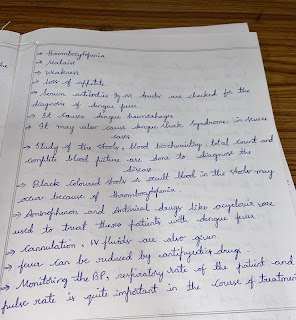 → thrombocytopenia
→ Malaise
→ Weakness
→ Loss of appetite
→ Serum antibodies Ig-M levels are checked for the
diagnosis of dengue fever
→ It causes dengue haemorrhage
→ It may also cause dengue shock syndrome in severe
cases
→ Study of the stools, blood biochemistry, total count and
complete blood picture are done to diagnose the
disease
→ Black coloured stools & occult blood in the stools may
occur because of thrombocytopenia.
→ and antiviral drugs like acyclovir are
used to treat these patients with dengue fever.
→ Cannulation, IV fluids are also given.
→ fever can be reduced by antipyretics drugs.
→ Monitoring the BP, respiratory rate of the patient and
pulse rate is quite important in the course of treatment